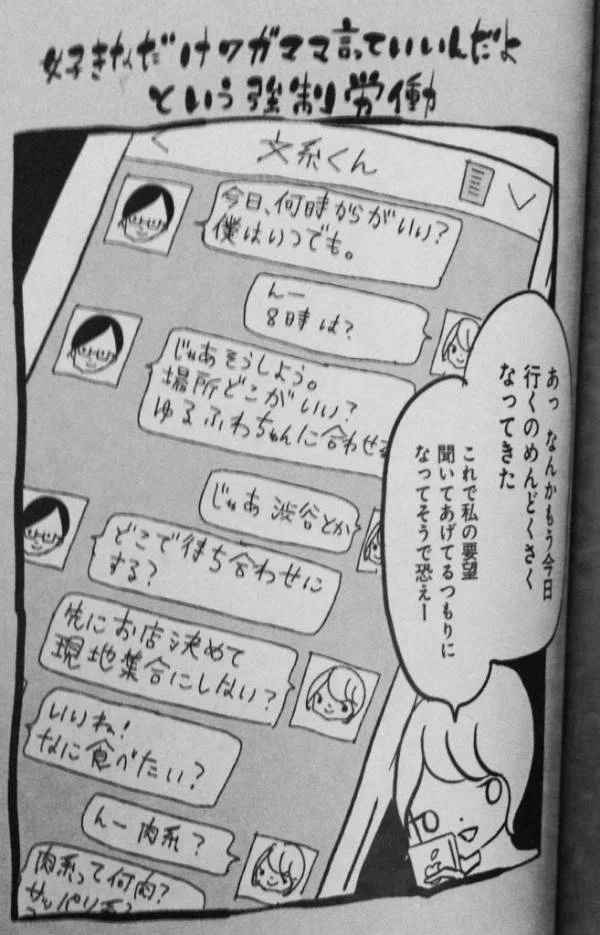 好きなだけワガママ言っていいんだよ
という強制労働
文系くん
今日、何時からがいい?
僕はいつでも。
んー
8時は?
じゃあそうしよう。
場所どこがいい?
ゆるふわちゃんに合わせる
じゃあ渋谷とか
どこで待ち合わせに
する?
先にお店決めて
現地集合にしない?
いいね!
なに食べたい?
んー肉系?
肉系って何肉?
サッパリ系?
あっ なんかもう今日
行くのめんどくさく
なってきた
これで私の要望
聞いてあげてるつもりに
なってそうで恐えー